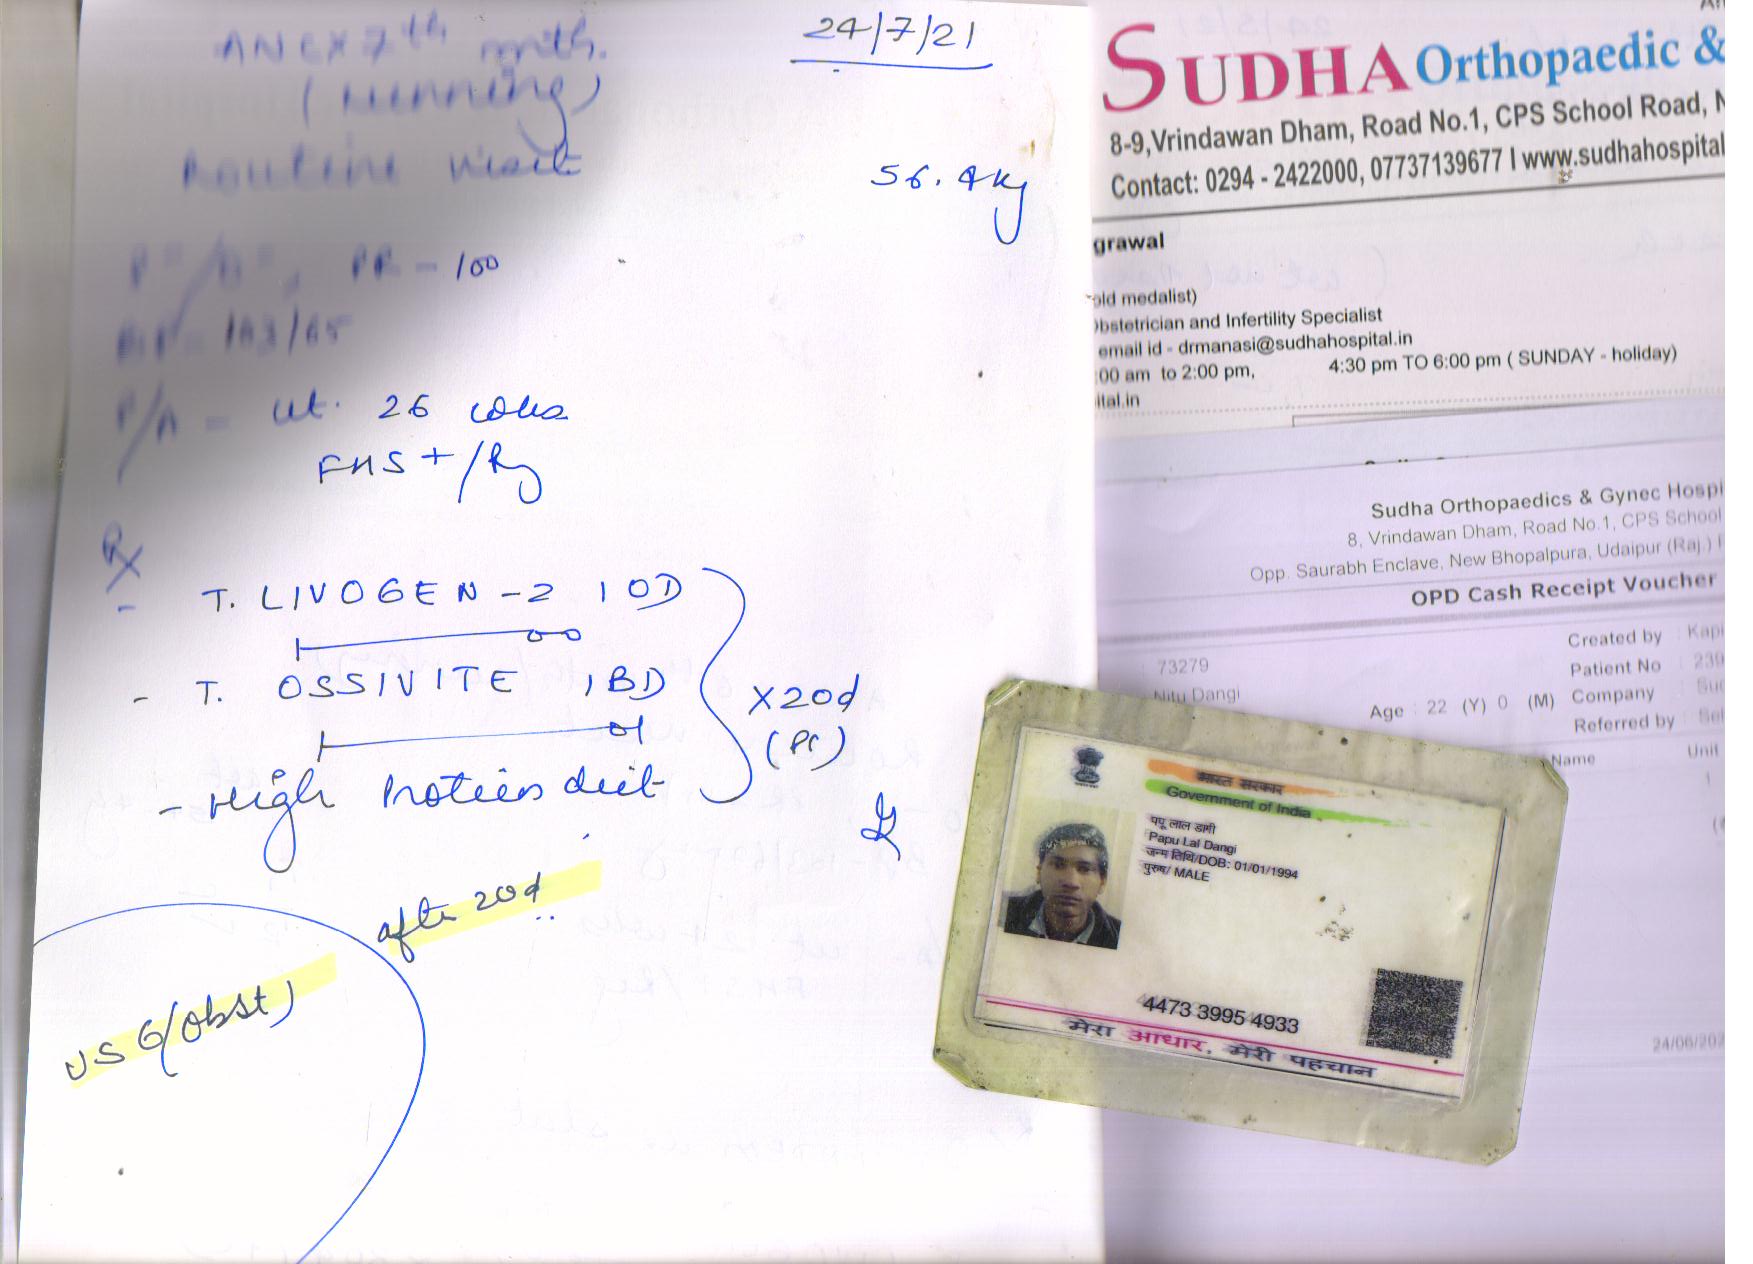 24/7/21
ANC X 7th mth.
(running)
Routine visit
56.4 kg
PR - 100
BP = 103/65
P/A = ut. 26 wks
FHS + / Rg
Rx
- T. LIVOGEN - Z 1 OD
- T. OSSIVITE 1 BD
X 20d
(PC)
- High Protein diet
after 20d
USG (Obst)
SUDHA Orthopaedic &
8-9,Vrindawan Dham, Road No.1, CPS School Road, N
Contact: 0294 - 2422000, 07737139677 I www.sudhahospital
grawal
old medalist)
Obstetrician and Infertility Specialist
email id - drmanasi@sudhahospital.in
:00 am to 2:00 pm, 4:30 pm TO 6:00 pm ( SUNDAY - holiday)
ital.in
Sudha Orthopaedics & Gynec Hospi
8, Vrindawan Dham, Road No.1, CPS School
Opp. Saurabh Enclave, New Bhopalpura, Udaipur (Raj.)
OPD Cash Receipt Voucher
Created by : Kapi
73279
Patient No : 239
Nitu Dangi
Age : 22 (Y) 0 (M)
Company
Referred by : Sel
Name Unit
1
24/06/202
भारत सरकार
Government of India
पपू लाल डांगी
Papu Lal Dangi
जन्म तिथि/DOB: 01/01/1994
पुरुष/ MALE
4473 3995 4933
मेरा आधार, मेरी पहचान